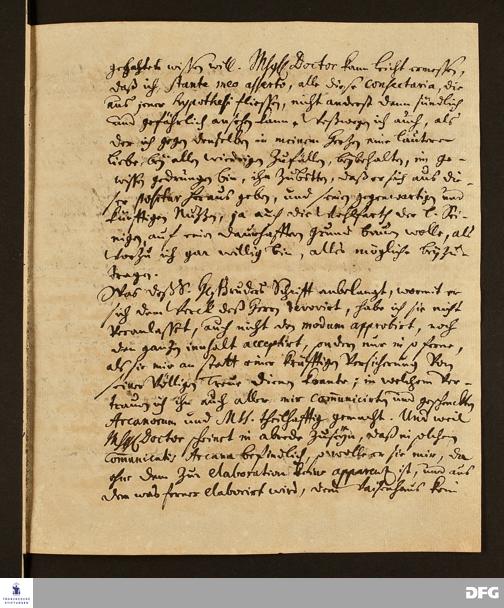 gehabt wissen will. Msgl Doctor kann leicht ermessen,
daß ich, stante meo asserto, alle diese Consectaria, die
aus jener Hypothesi fliessen, nicht anderst dann sündlich
und gefährlich ansehen kann. Deßwegen ich auch, als
der ich gegen denselben in meinem Herzen eine lautere
Liebe bey allen widrigen Zufällen, behalten, im Ge-
wissen gedrungen bin, ihn zu bitten, daß er sich aus die-
ser heraus geben, und seinen gegenwärtigen und
künfftigen Nutzen, ja auch die Wohlfarth der l. Sei-
nigen, auf einen dauerhafften Grund bauen wolle, als
worzu ich gar willig bin, alles mögliche beyzu-
tragen.
Was deß S. Hl. Bruders Schrifft anbelangt, wormit er
sich dem Werck deß Herrn devovirt, habe ich sie nicht
veranlasst, auch nicht den modum approbirt, noch
den ganzen innhalt acceptirt, sondern nur in so ferne,
als sie mir an statt einer kräfftigen Versicherung von
seiner völligen Treue dienen konnte; in welchem Ver-
trauen ich ihn auch aller mir communicirten und geschenckten
Arcanorum und Mts. theilhafftig gemacht. Und weil
Msgl Doctor scheint in abrede zu seyn, daß in solchen
Communicatis Arcana befindlich, so wolle er sie mir, da
ohne dem zur Elaboration keine apparentz ist, und aus
dem was ferner elaborirt wird, dem Waisenhaus kein
FRANCKESCHE
STIFTUNGEN
DFG